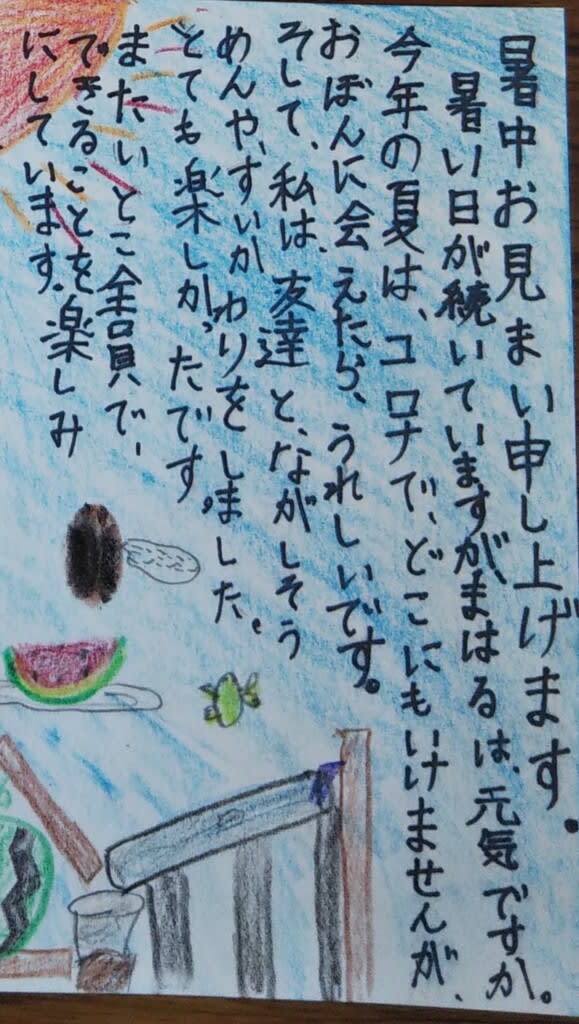 暑中お見まい申し上げます。
暑い日が続いていますが、まはるは、元気ですか。
今年の夏は、コロナで、どこにもいけませんが、
おぼんに会えたら、うれしいです。
そして、私は、友達と、ながしそう
めんや、すいかわりをしました。
とても楽しかったです。
またいとこ全員で、
できることを楽しみ
にしています。